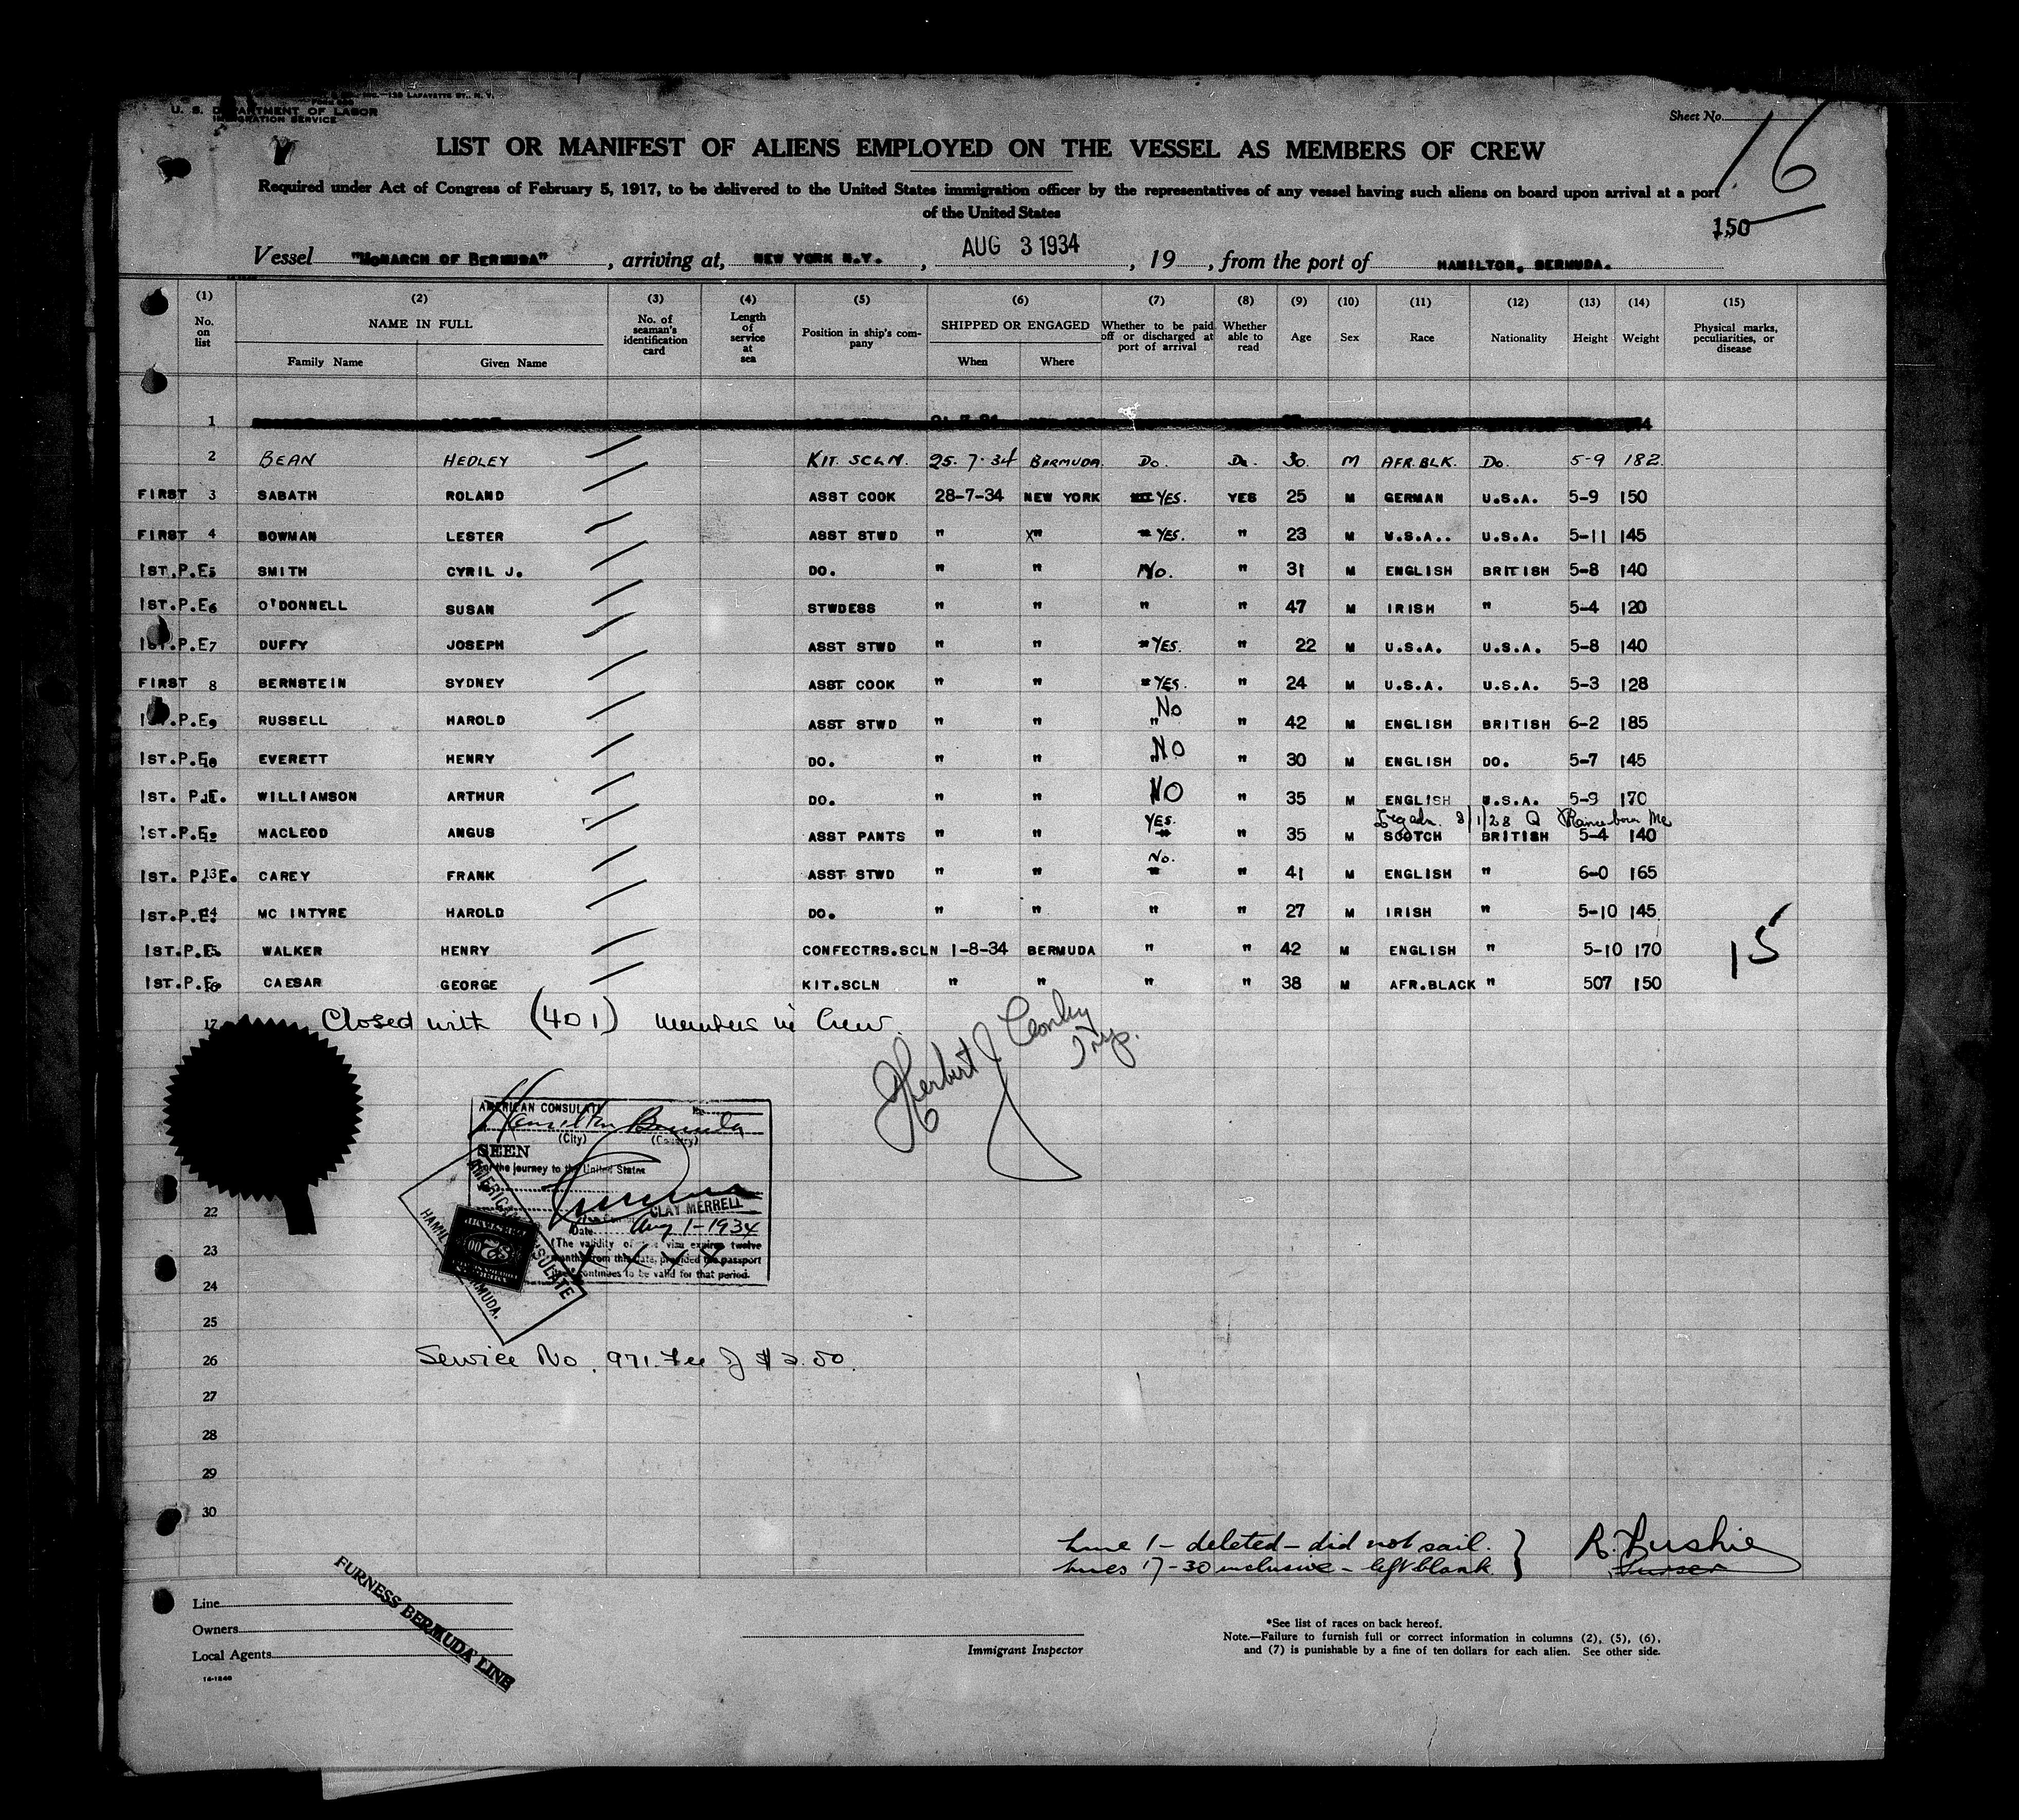 INC.—138 LAFAYETTE ST., N. Y.
U. S. DEPARTMENT OF LABOR
IMMIGRATION SERVICE
Sheet No. 16
LIST OR MANIFEST OF ALIENS EMPLOYED ON THE VESSEL AS MEMBERS OF CREW
Required under Act of Congress of February 5, 1917, to be delivered to the United States immigration officer by the representatives of any vessel having such aliens on board upon arrival at a port
of the United States
150
Vessel "MONARCH OF BERMUDA", arriving at, NEW YORK N.Y., AUG 3 1934, 19 , from the port of HAMILTON, BERMUDA.
(1) (2) (3) (4) (5) (6) (7) (8) (9) (10) (11) (12) (13) (14) (15)
No. on list NAME IN FULL Family Name Given Name No. of seaman's identification card Length of service at sea Position in ship's company SHIPPED OR ENGAGED When Where Whether to be paid off or discharged at port of arrival Whether able to read Age Sex Race Nationality Height Weight Physical marks, peculiarities, or disease
1
2 BEAN HEDLEY KIT. SCLN. 25.7.34 BERMUDA. Do. Do. 30. M AFR.BLK. Do. 5-9 182.
FIRST 3 SABATH ROLAND ASST COOK 28-7-34 NEW YORK YES. YES 25 M GERMAN U.S.A. 5-9 150
FIRST 4 BOWMAN LESTER ASST STWD " X" YES. " 23 M U.S.A.. U.S.A. 5-11 145
1ST.P.E. 5 SMITH CYRIL J. DO. " " No. " 31 M ENGLISH BRITISH 5-8 140
1ST.P.E. 6 O'DONNELL SUSAN STWDESS " " " " 47 M IRISH " 5-4 120
1ST.P.E. 7 DUFFY JOSEPH ASST STWD " " YES. " 22 M U.S.A. U.S.A. 5-8 140
FIRST 8 BERNSTEIN SYDNEY ASST COOK " " YES. " 24 M U.S.A. U.S.A. 5-3 128
1ST.P.E. 9 RUSSELL HAROLD ASST STWD " " No " " 42 M ENGLISH BRITISH 6-2 185
1ST.P.E. 10 EVERETT HENRY DO. " " NO " 30 M ENGLISH DO. 5-7 145
1ST. P.E. 11 WILLIAMSON ARTHUR DO. " " NO " 35 M ENGLISH U.S.A. 5-9 170
8/1/28
1ST.P.E. 12 MACLEOD ANGUS ASST PANTS " " YES. " 35 M SCOTCH BRITISH 5-4 140
1ST. P.E. 13 CAREY FRANK ASST STWD " " No. " 41 M ENGLISH " 6-0 165
1ST.P.E. 14 MC INTYRE HAROLD DO. " " " " 27 M IRISH " 5-10 145
1ST.P.E. 15 WALKER HENRY CONFECTRS.SCLN 1-8-34 BERMUDA " " 42 M ENGLISH " 5-10 170
15
1ST.P.E. 16 CAESAR GEORGE KIT.SCLN " " " " 38 M AFR.BLACK " 507 150
17 Closed with (401) members in Crew.
Herbert J
AMERICAN CONSULATE
No.
Hamilton Bermuda
(City) (Country)
SEEN
For the journey to the United States
CLAY MERRELL
Date Aug 1-1934
(The validity of the visa expires twelve
months from this date, provided the passport
continues to be valid for that period.
AMERICAN CONSULATE
HAMILTON, BERMUDA.
22
23
24
25
26 Service No. 971. Fee of $2.00.
27
28
29
30
Line 1 - deleted - did not sail.
Lines 17-30 inclusive - left blank.
Purser
Line
Owners
Local Agents
FURNESS BERMUDA LINE
Immigrant Inspector
*See list of races on back hereof.
Note.—Failure to furnish full or correct information in columns (2), (5), (6),
and (7) is punishable by a fine of ten dollars for each alien. See other side.
14-1240